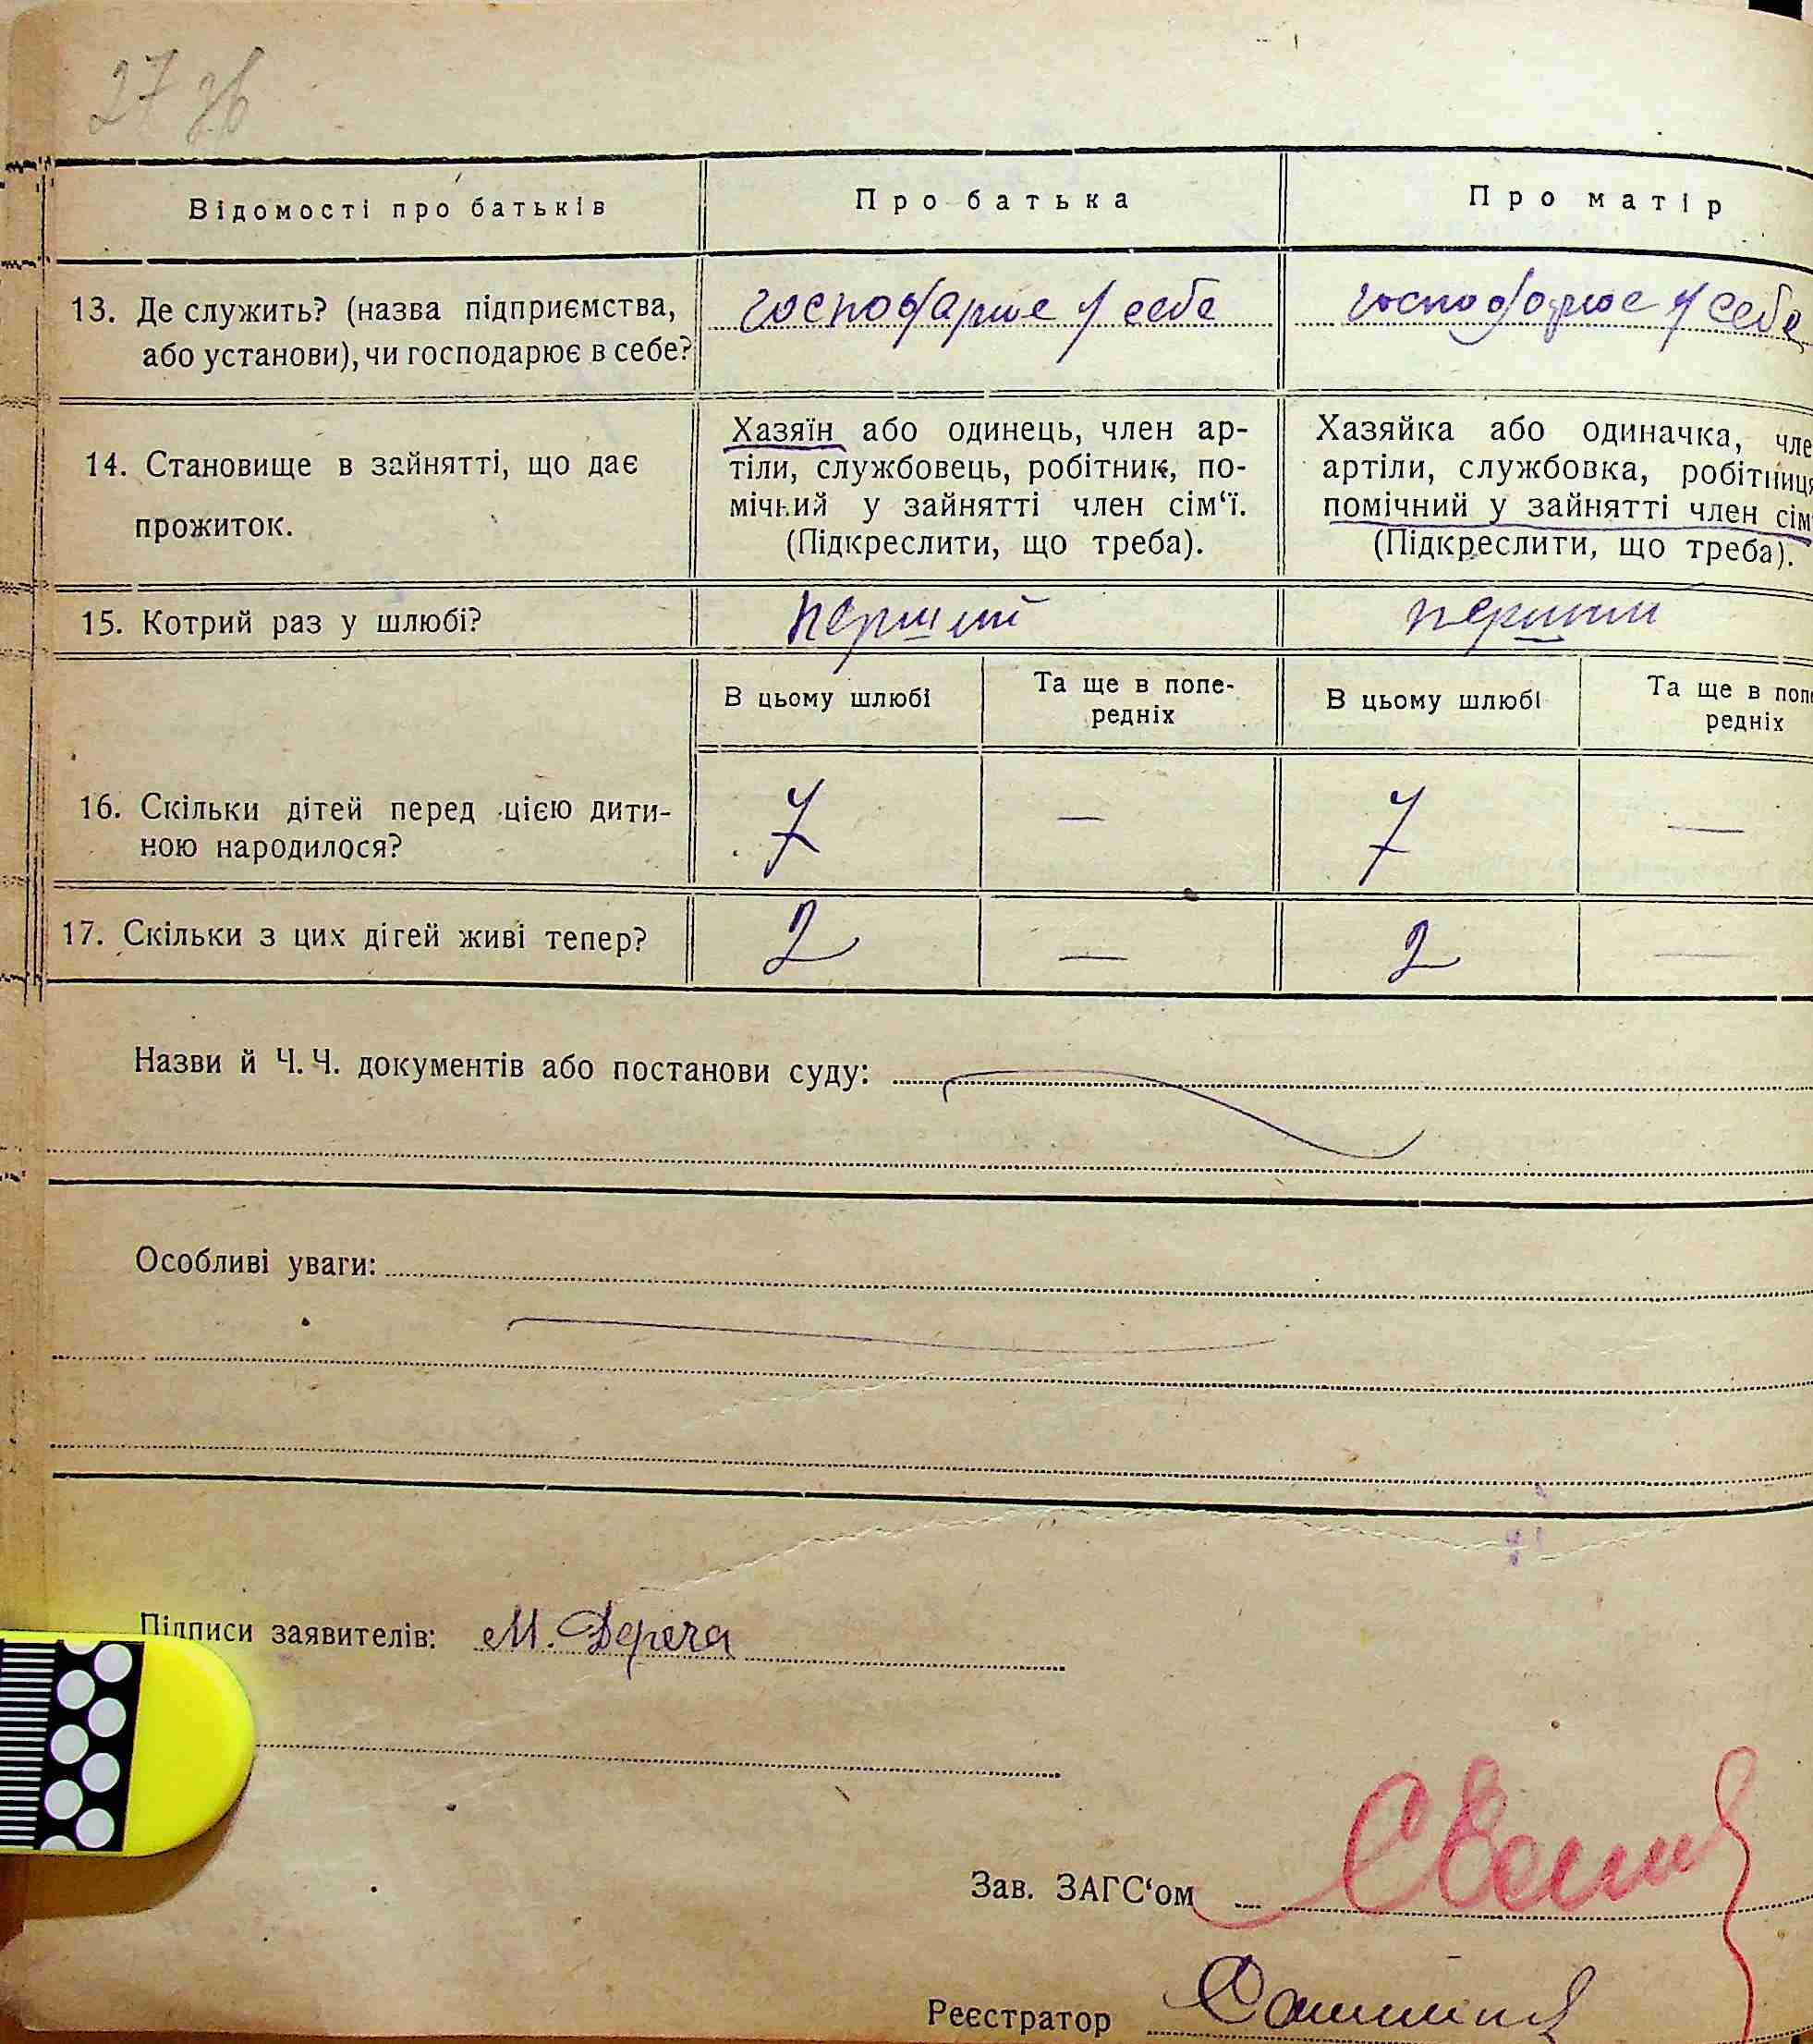 27 зв
Відомості про батьків
Про батька
Про матір
13. Де служить? (назва підприємства,
або установи), чи господарює в себе?
господарює у себе
господарює у себе
14. Становище в зайнятті, що дає
прожиток.
Хазяїн або одинець, член ар-
тіли, службовець, робітник, по-
мічний у зайнятті член сім‘ї.
(Підкреслити, що треба).
Хазяйка або одиначка, чле
артіли, службовка, робітниця
помічний у зайнятті член сім‘
(Підкреслити, що треба).
15. Котрий раз у шлюбі?
перший
перший
В цьому шлюбі
Та ще в попе-
редніх
В цьому шлюбі
Та ще в попе
редніх
16. Скільки дітей перед цією дити-
ною народилося?
7 — 7 —
17. Скільки з цих дітей живі тепер?
2 — 2 —
Назви й Ч. Ч. документів або постанови суду:
Особливі уваги:
Підписи заявителів: М. Дереча
Зав. ЗАГС‘ом
Реєстратор